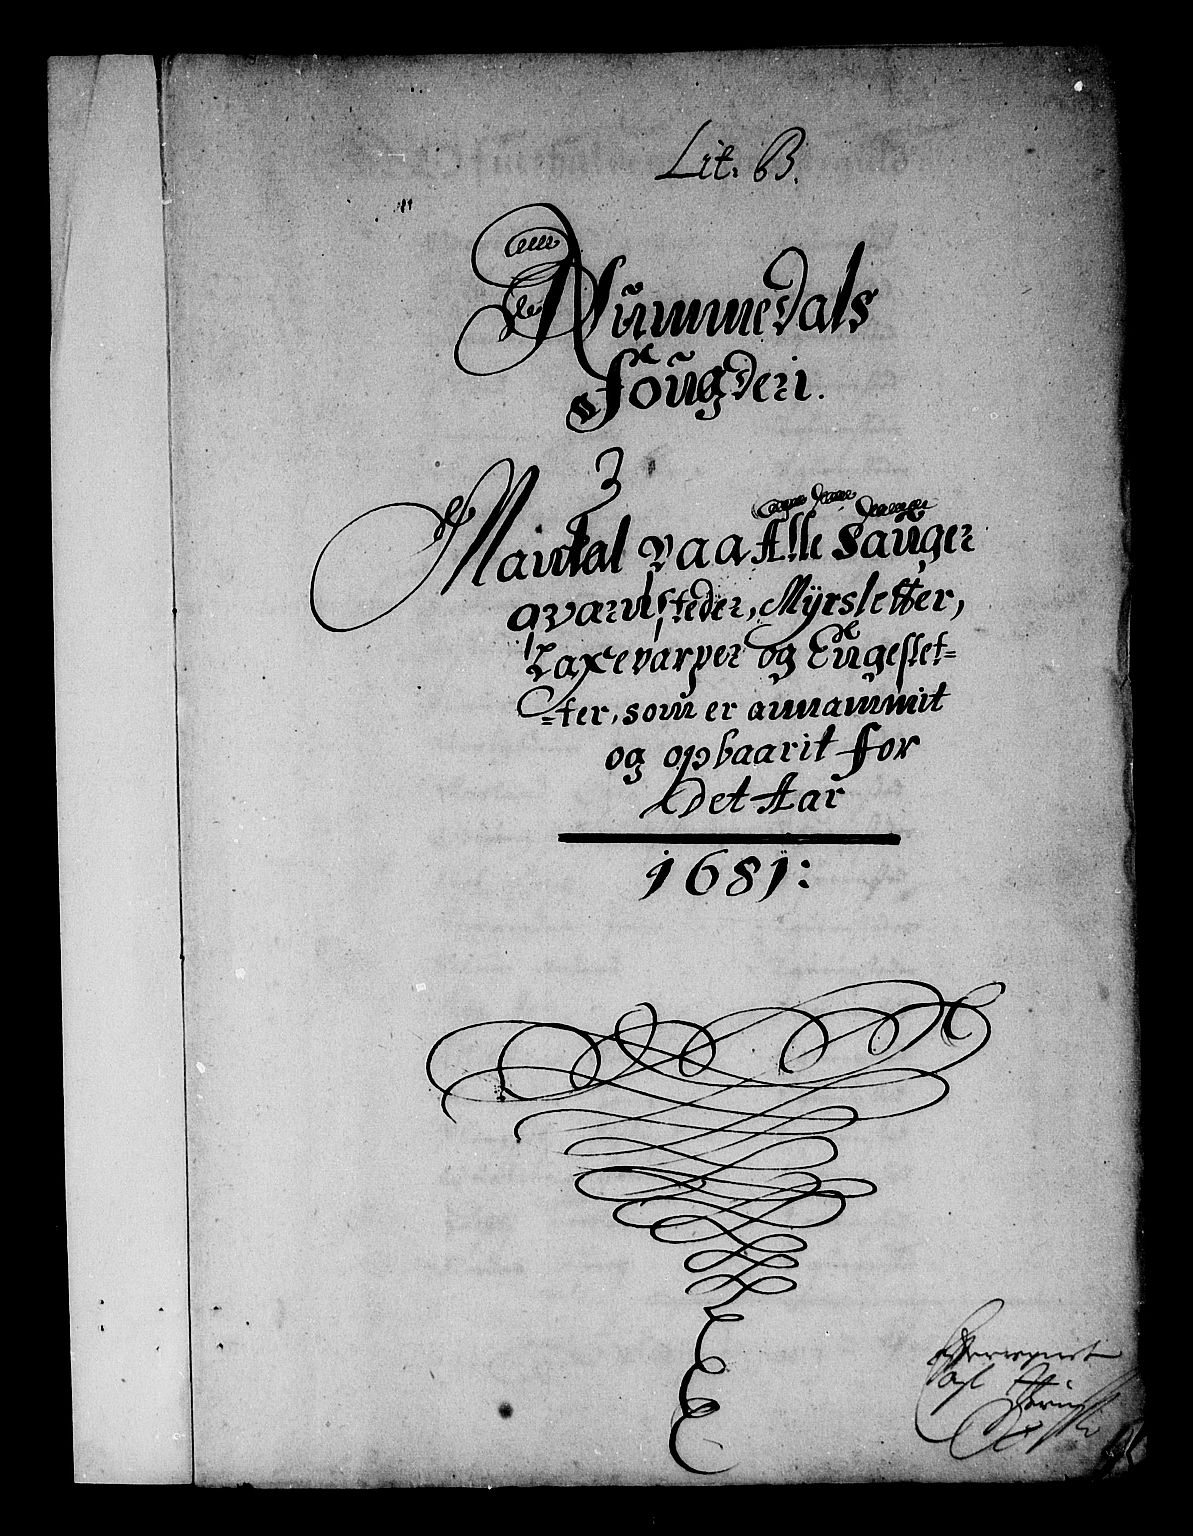 Lit. B.
Nummedals
Fougderi.
3
Mandal paa Alle Sauger
qvarnsteder, Myrsletter,
Laxevarper og Engeslet=
=ter, som er annammit
og opbaarit for
Det Aar
1681: